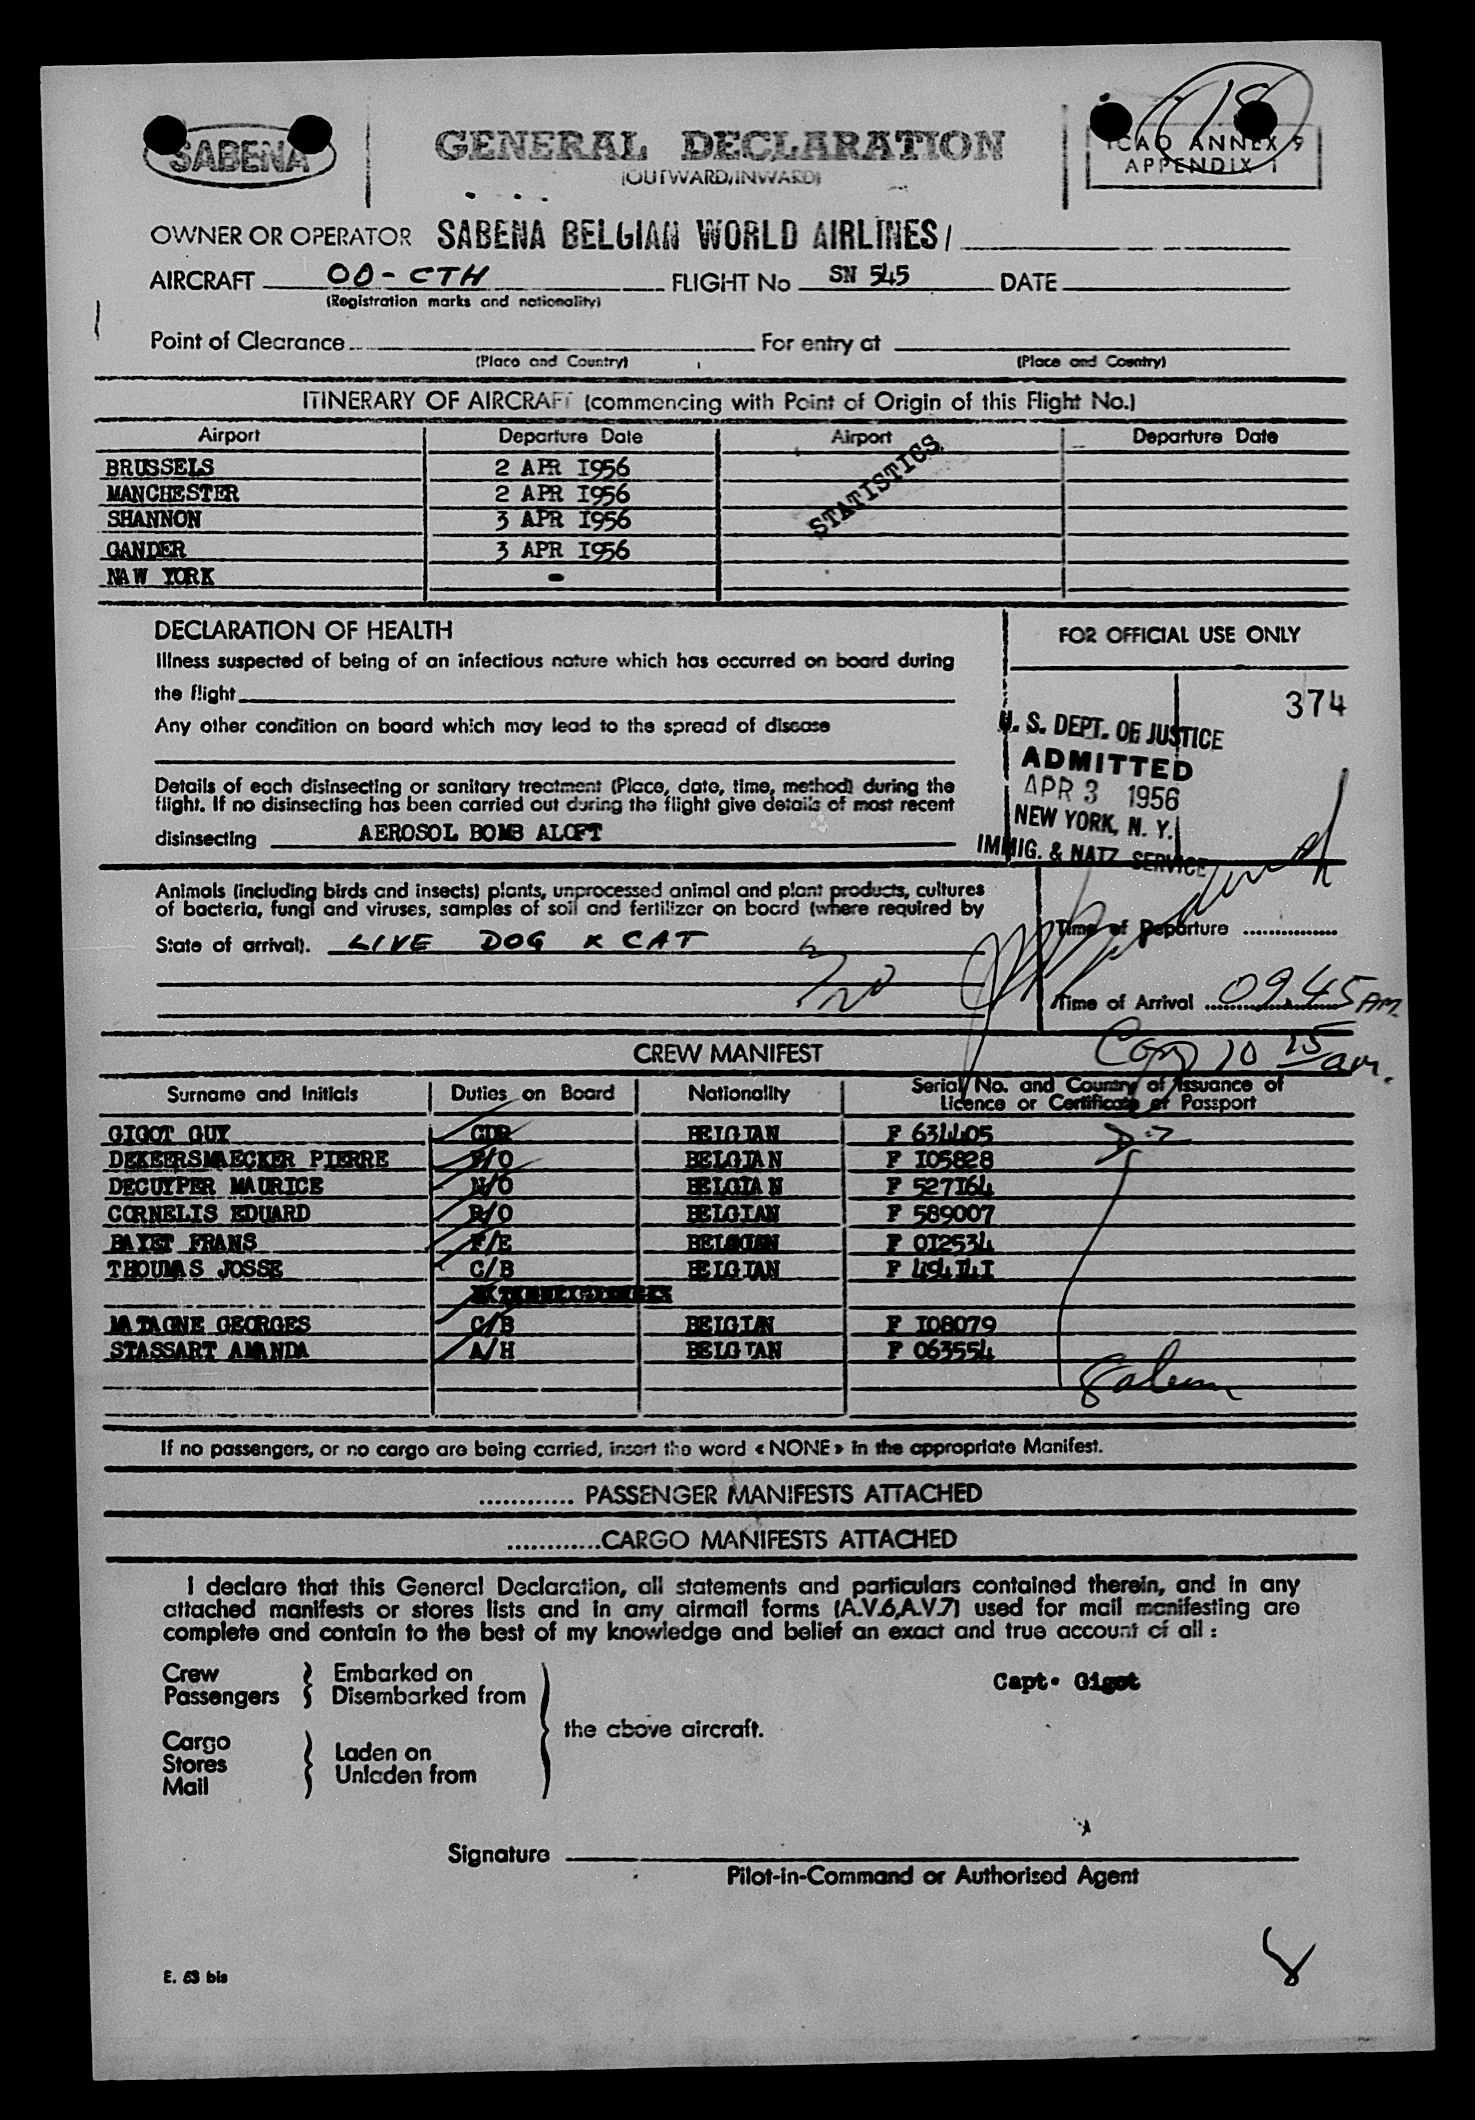 SABENA
GENERAL DECLARATION
(OUTWARD/INWARD)
18
ICAO ANNEX 9
APPENDIX 1
OWNER OR OPERATOR SABENA BELGIAN WORLD AIRLINES/
AIRCRAFT OO-CTH FLIGHT No SN 545 DATE
(Registration marks and nationality)
Point of Clearance For entry at
(Place and Country) (Place and Country)
ITINERARY OF AIRCRAFT (commencing with Point of Origin of this Flight No.)
Airport Departure Date Airport Departure Date
BRUSSELS 2 APR I956
MANCHESTER 2 APR I956
SHANNON 3 APR I956
GANDER 3 APR I956
NAW YORK -
STATISTICS
DECLARATION OF HEALTH
Illness suspected of being of an infectious nature which has occurred on board during
the flight
Any other condition on board which may lead to the spread of disease
Details of each disinsecting or sanitary treatment (Place, date, time, method) during the
flight. If no disinsecting has been carried out during the flight give details of most recent
disinsecting AEROSOL BOMB ALOFT
FOR OFFICIAL USE ONLY
374
U. S. DEPT. OF JUSTICE
ADMITTED
APR 3 1956
NEW YORK, N. Y.
IMMIG. & NATZ SERVICE
Animals (including birds and insects) plants, unprocessed animal and plant products, cultures
of bacteria, fungi and viruses, samples of soil and fertilizer on board (where required by
State of arrival). LIVE DOG & CAT
Time of Departure
Time of Arrival 0945 AM
10 15 am.
CREW MANIFEST
Surname and Initials Duties on Board Nationality Serial No. and Country of Issuance of
Licence or Certificate or Passport
GIGOT GUY CDR BELGIAN F 634405
DEKEERSMAECKER PIERRE F/O BELGIAN F I05828
DECUYPER MAURICE N/O BELGIAN F 527I64
CORNELIS EDUARD R/O BELGIAN F 589007
BAYET FRANS F/E BELGIAN F 0I2534
THOUMAS JOSSE C/B BELGIAN F 494I4I
MATAGNE GEORGES C/B BELGIAN F I08079
STASSART AMANDA A/H BELGIAN F 063554
If no passengers, or no cargo are being carried, insert the word « NONE » in the appropriate Manifest.
............ PASSENGER MANIFESTS ATTACHED
............CARGO MANIFESTS ATTACHED
I declare that this General Declaration, all statements and particulars contained therein, and in any
attached manifests or stores lists and in any airmail forms (A.V.6,A.V.7) used for mail manifesting are
complete and contain to the best of my knowledge and belief an exact and true account of all :
Crew Embarked on
Passengers Disembarked from
Capt. Gigot
the above aircraft.
Cargo
Stores Laden on
Mail Unladen from
Signature
Pilot-in-Command or Authorised Agent
8
E. 53 bis